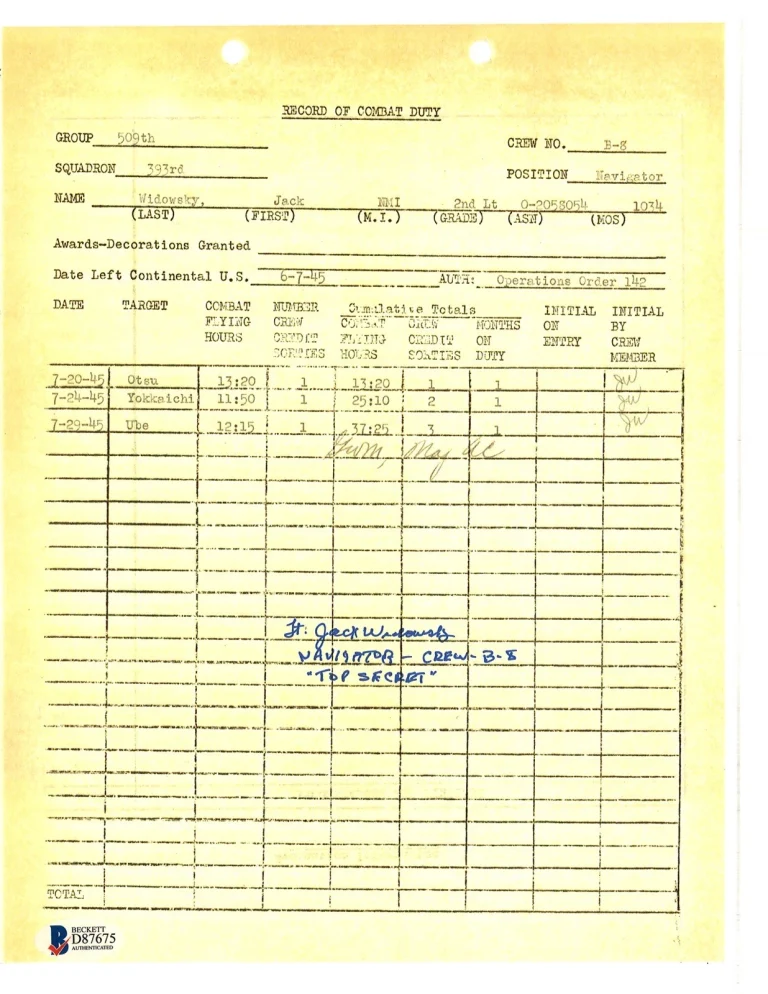 RECORD OF COMBAT DUTY
GROUP 509th
CREW NO. B-8
SQUADRON 393rd
POSITION Navigator
NAME Widowsky, Jack NMI 2nd Lt 0-2058054 1034
(LAST) (FIRST) (M.I.) (GRADE) (ASN) (MOS)
Awards-Decorations Granted
Date Left Continental U.S. 6-7-45 AUTH: Operations Order 142
DATE TARGET COMBAT NUMBER Cumulative Totals INITIAL INITIAL
FLYING CREW COMBAT CREW MONTHS ON BY
HOURS CREDIT FLYING CREDIT ON ENTRY CREW
SORTIES HOURS SORTIES DUTY MEMBER
7-20-45 Otsu 13:20 1 13:20 1 1 JW
7-24-45 Yokkaichi 11:50 1 25:10 2 1 JW
7-29-45 Ube 12:15 1 37:25 3 1 JW
Maj AC
Lt. Jack Widowsky
NAVIGATOR - CREW - B-8
"TOP SECRET"
TOTAL
BECKETT
D87675
AUTHENTICATED